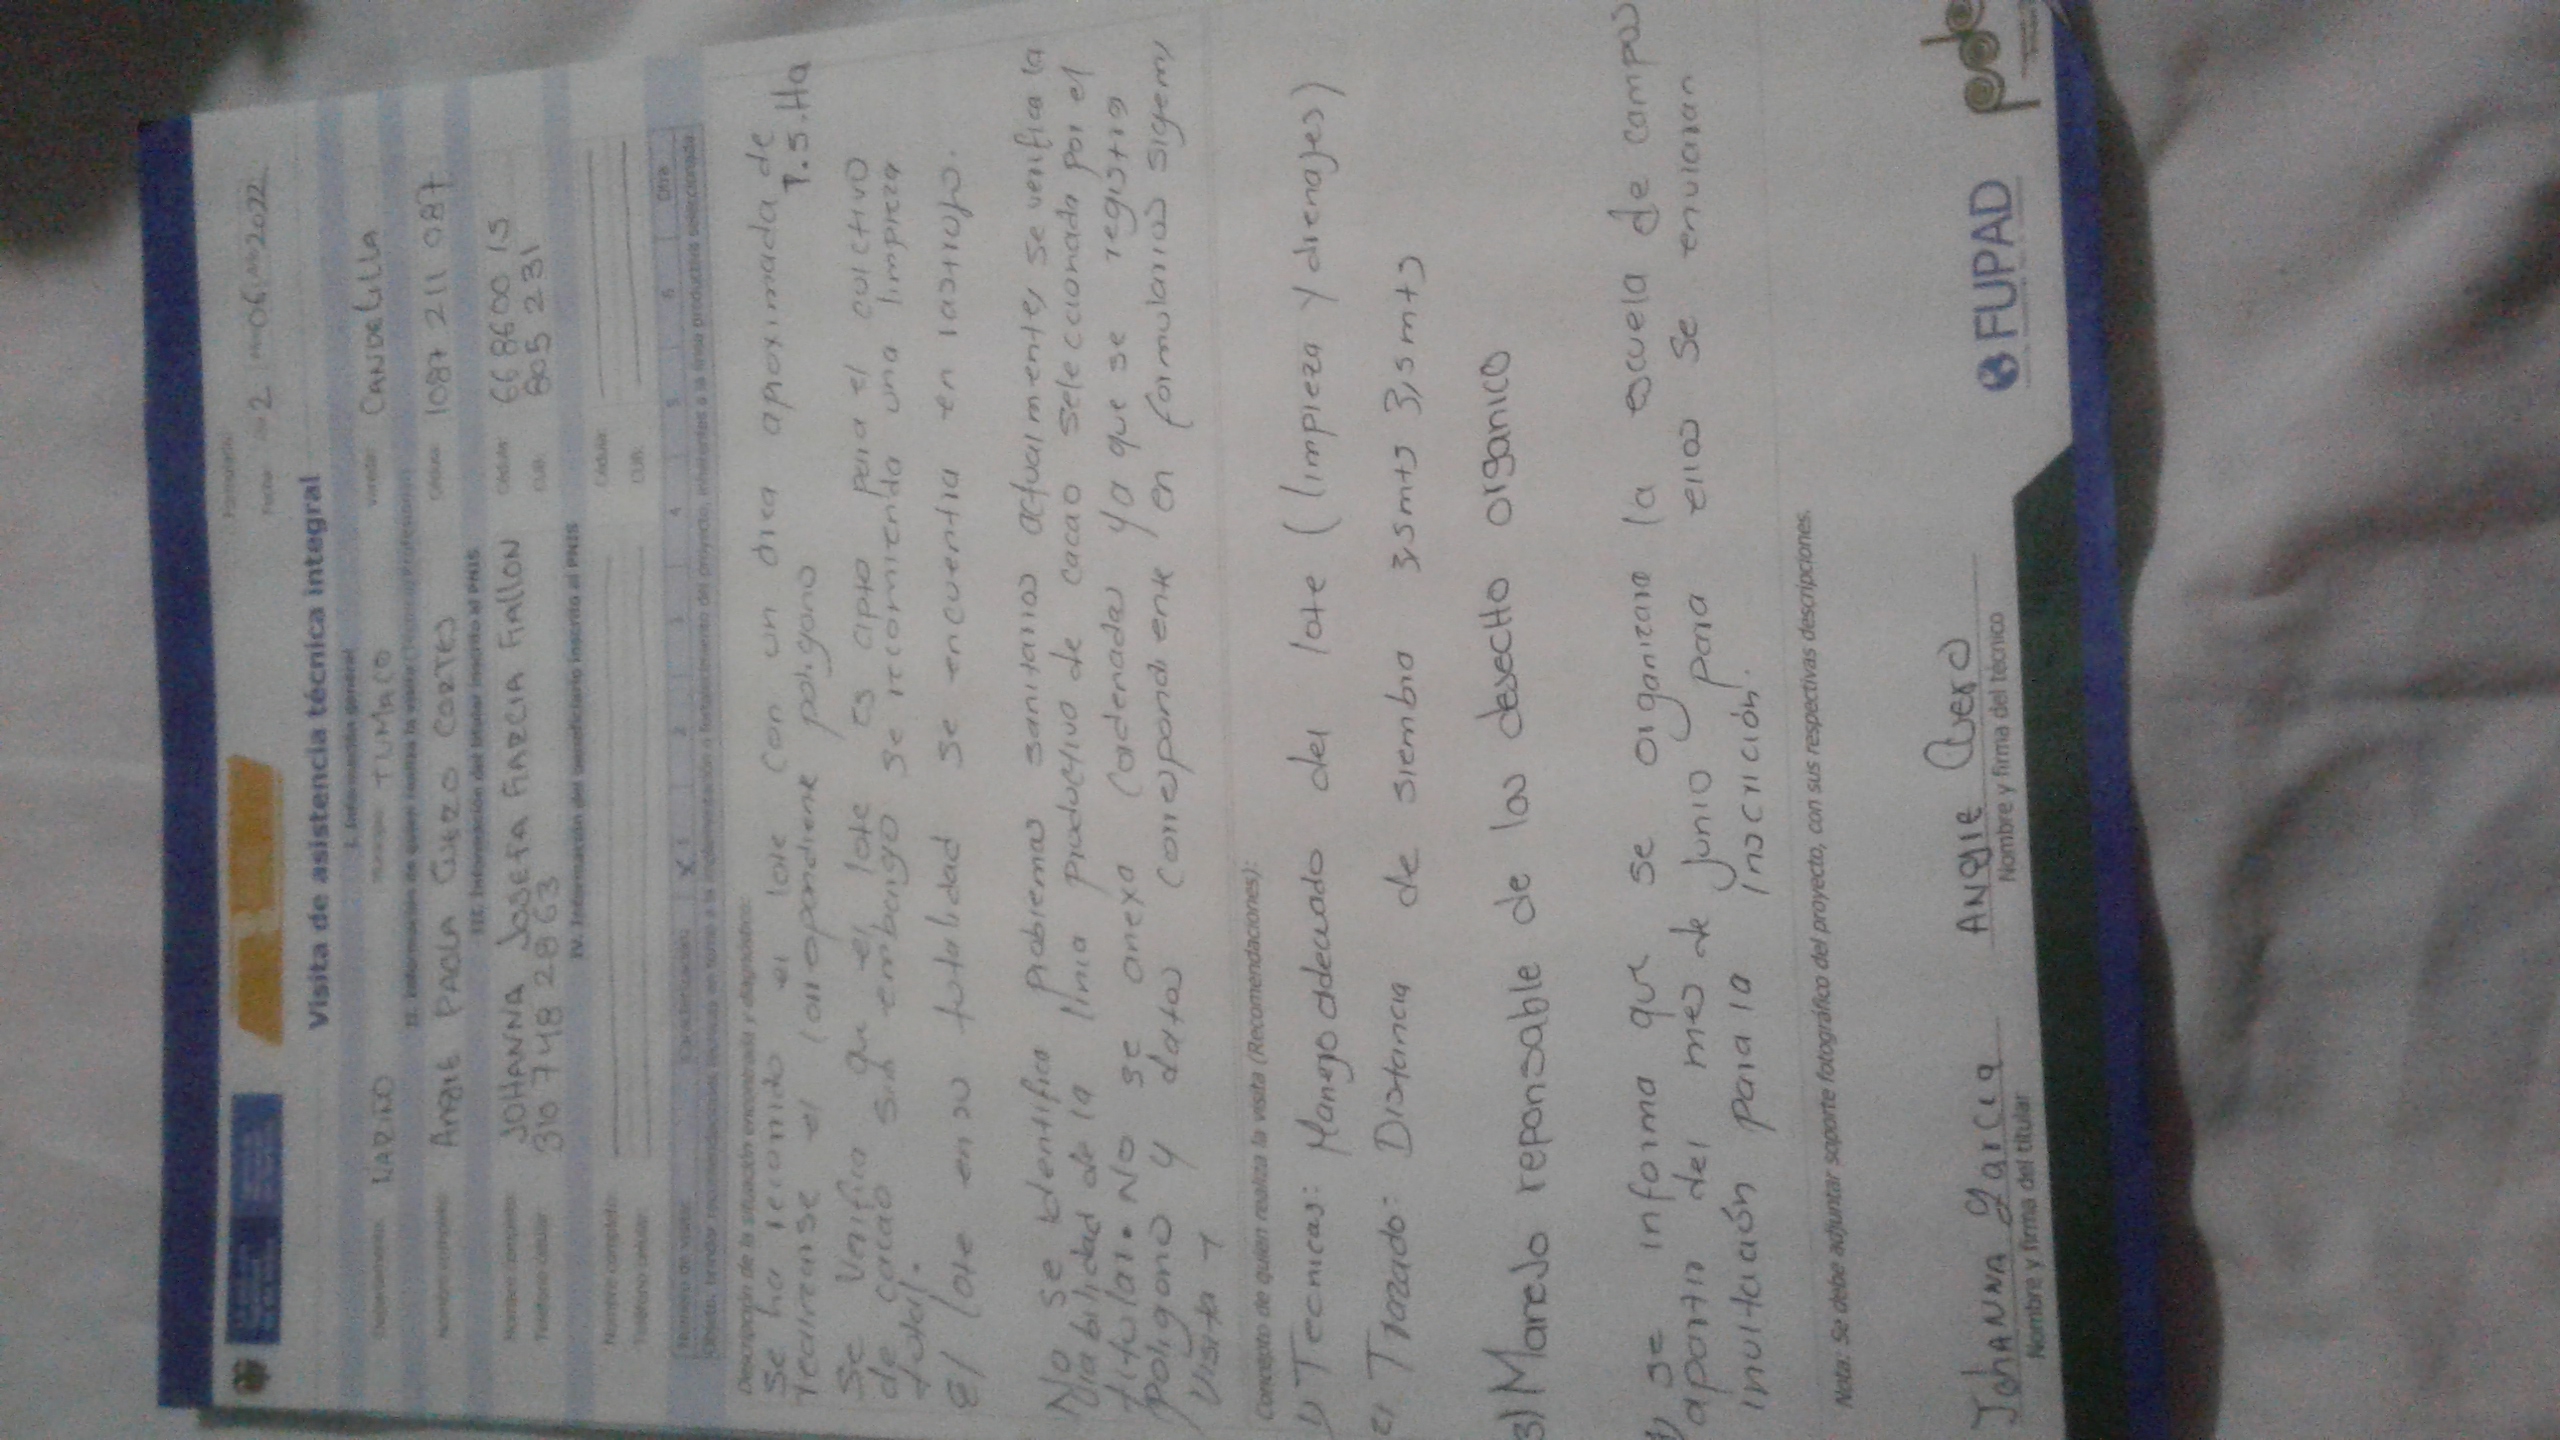 Formulario:
Fecha: 02 M 06 A 2022
Visita de asistencia técnica integral
I. Información general
Departamento: NARIÑO Municipio: TUMACO Vereda: CANDELILLA
II. Información de quien realiza la visita
Nombre completo: ANGIE PAOLA CUERO CORTES Cédula: 1087 211 087
III. Información del titular inscrito al PNIS
Nombre completo: JOHANNA JOSEFA GARCIA GALLON Cédula: 66 8600 15
Teléfono celular: 310 748 2863 CUB: 805 231
IV. Información del beneficiario inscrito al PNIS
Nombre completo: Cédula:
Teléfono celular: CUB:
Número de visita: Caracterización: X 1 2 3 4 5 6 Otra
Descripción de la situación encontrada y diagnóstico:
Se ha recorrido el lote con un area aproximada de
realizarse el correpondiene poligono 1.5.Ha
Se Verifica que el lote es apto para el cultivo
de cacao sin embargo se recomienda una limpieza
total.
El lote en su totalidad se encuentra en rastrojo.
No se identifica problemas sanitarios actualmente, se verifica la
viabilidad de la linia productiva de cacao seleccionada por el
titular. No se anexa Cordenadas ya que se registra
poligono y datos correspondiente en formularios sigem,
Visita 1
Concepto de quien realiza la visita (Recomendaciones):
1) Tecnicas: Manejo adecuado del lote (limpieza y drenajes)
2) Trazado: Distancia de siembra 3,5mts 3,5mts
3) Manejo reponsable de los desecho organico
4) se informa que se organizara la escuela de campos
apartir del mes de junio para ellos se enviaran
invitación para la inscrición.
Nota: Se debe adjuntar soporte fotográfico del proyecto, con sus respectivas descripciones.
JohANNA garcia ANGIE Cuero
Nombre y firma del titular Nombre y firma del técnico
FUPAD